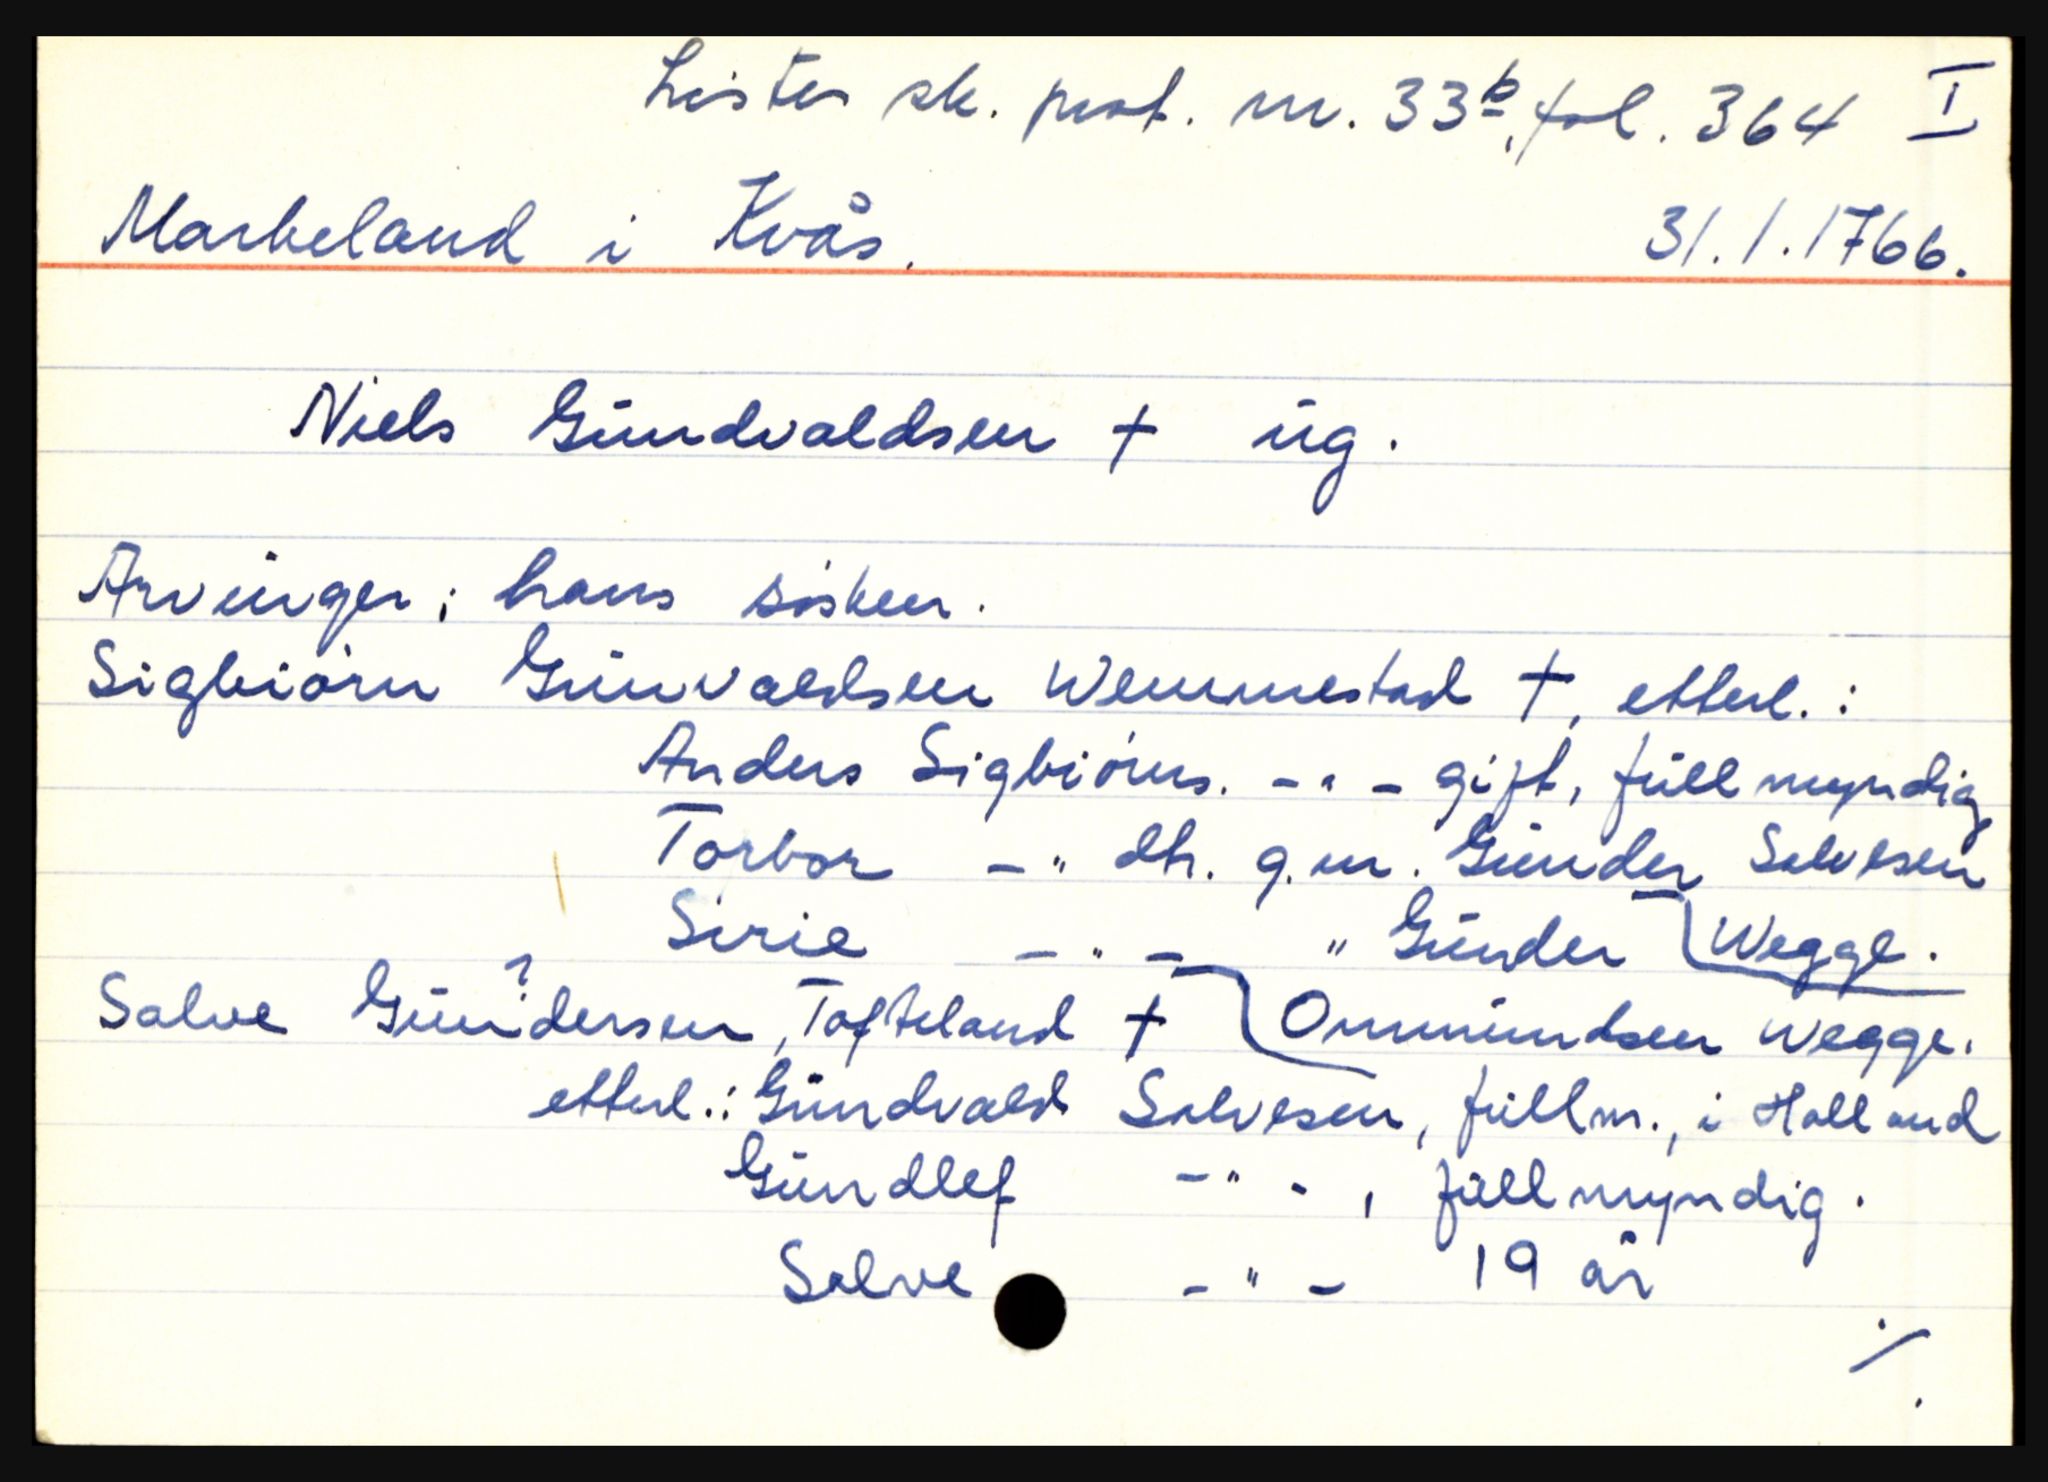 Lister sk. prot. nr. 33b, fol. 364 I
Markeland i Kvås. 31.1.1766.
Niels Gundvaldsen † ug.
Arvinger: hans søsken.
Sigbiørn Gunvaldsen Wemmestad †, etterl.:
Anders Sigbiørns. -"- gift, fullmyndig
Torbor -" dtr. g.m. Gunder Salvesen
Sirie -"- " Gunder Wegge.
Salve Gun?dersen, Tofteland † Ommundsen Wegge.
etterl.: Gundvald Salvesen, fullm., i Holland
Gundlef -"-, fullmyndig.
Salve -"- 19 år
./.